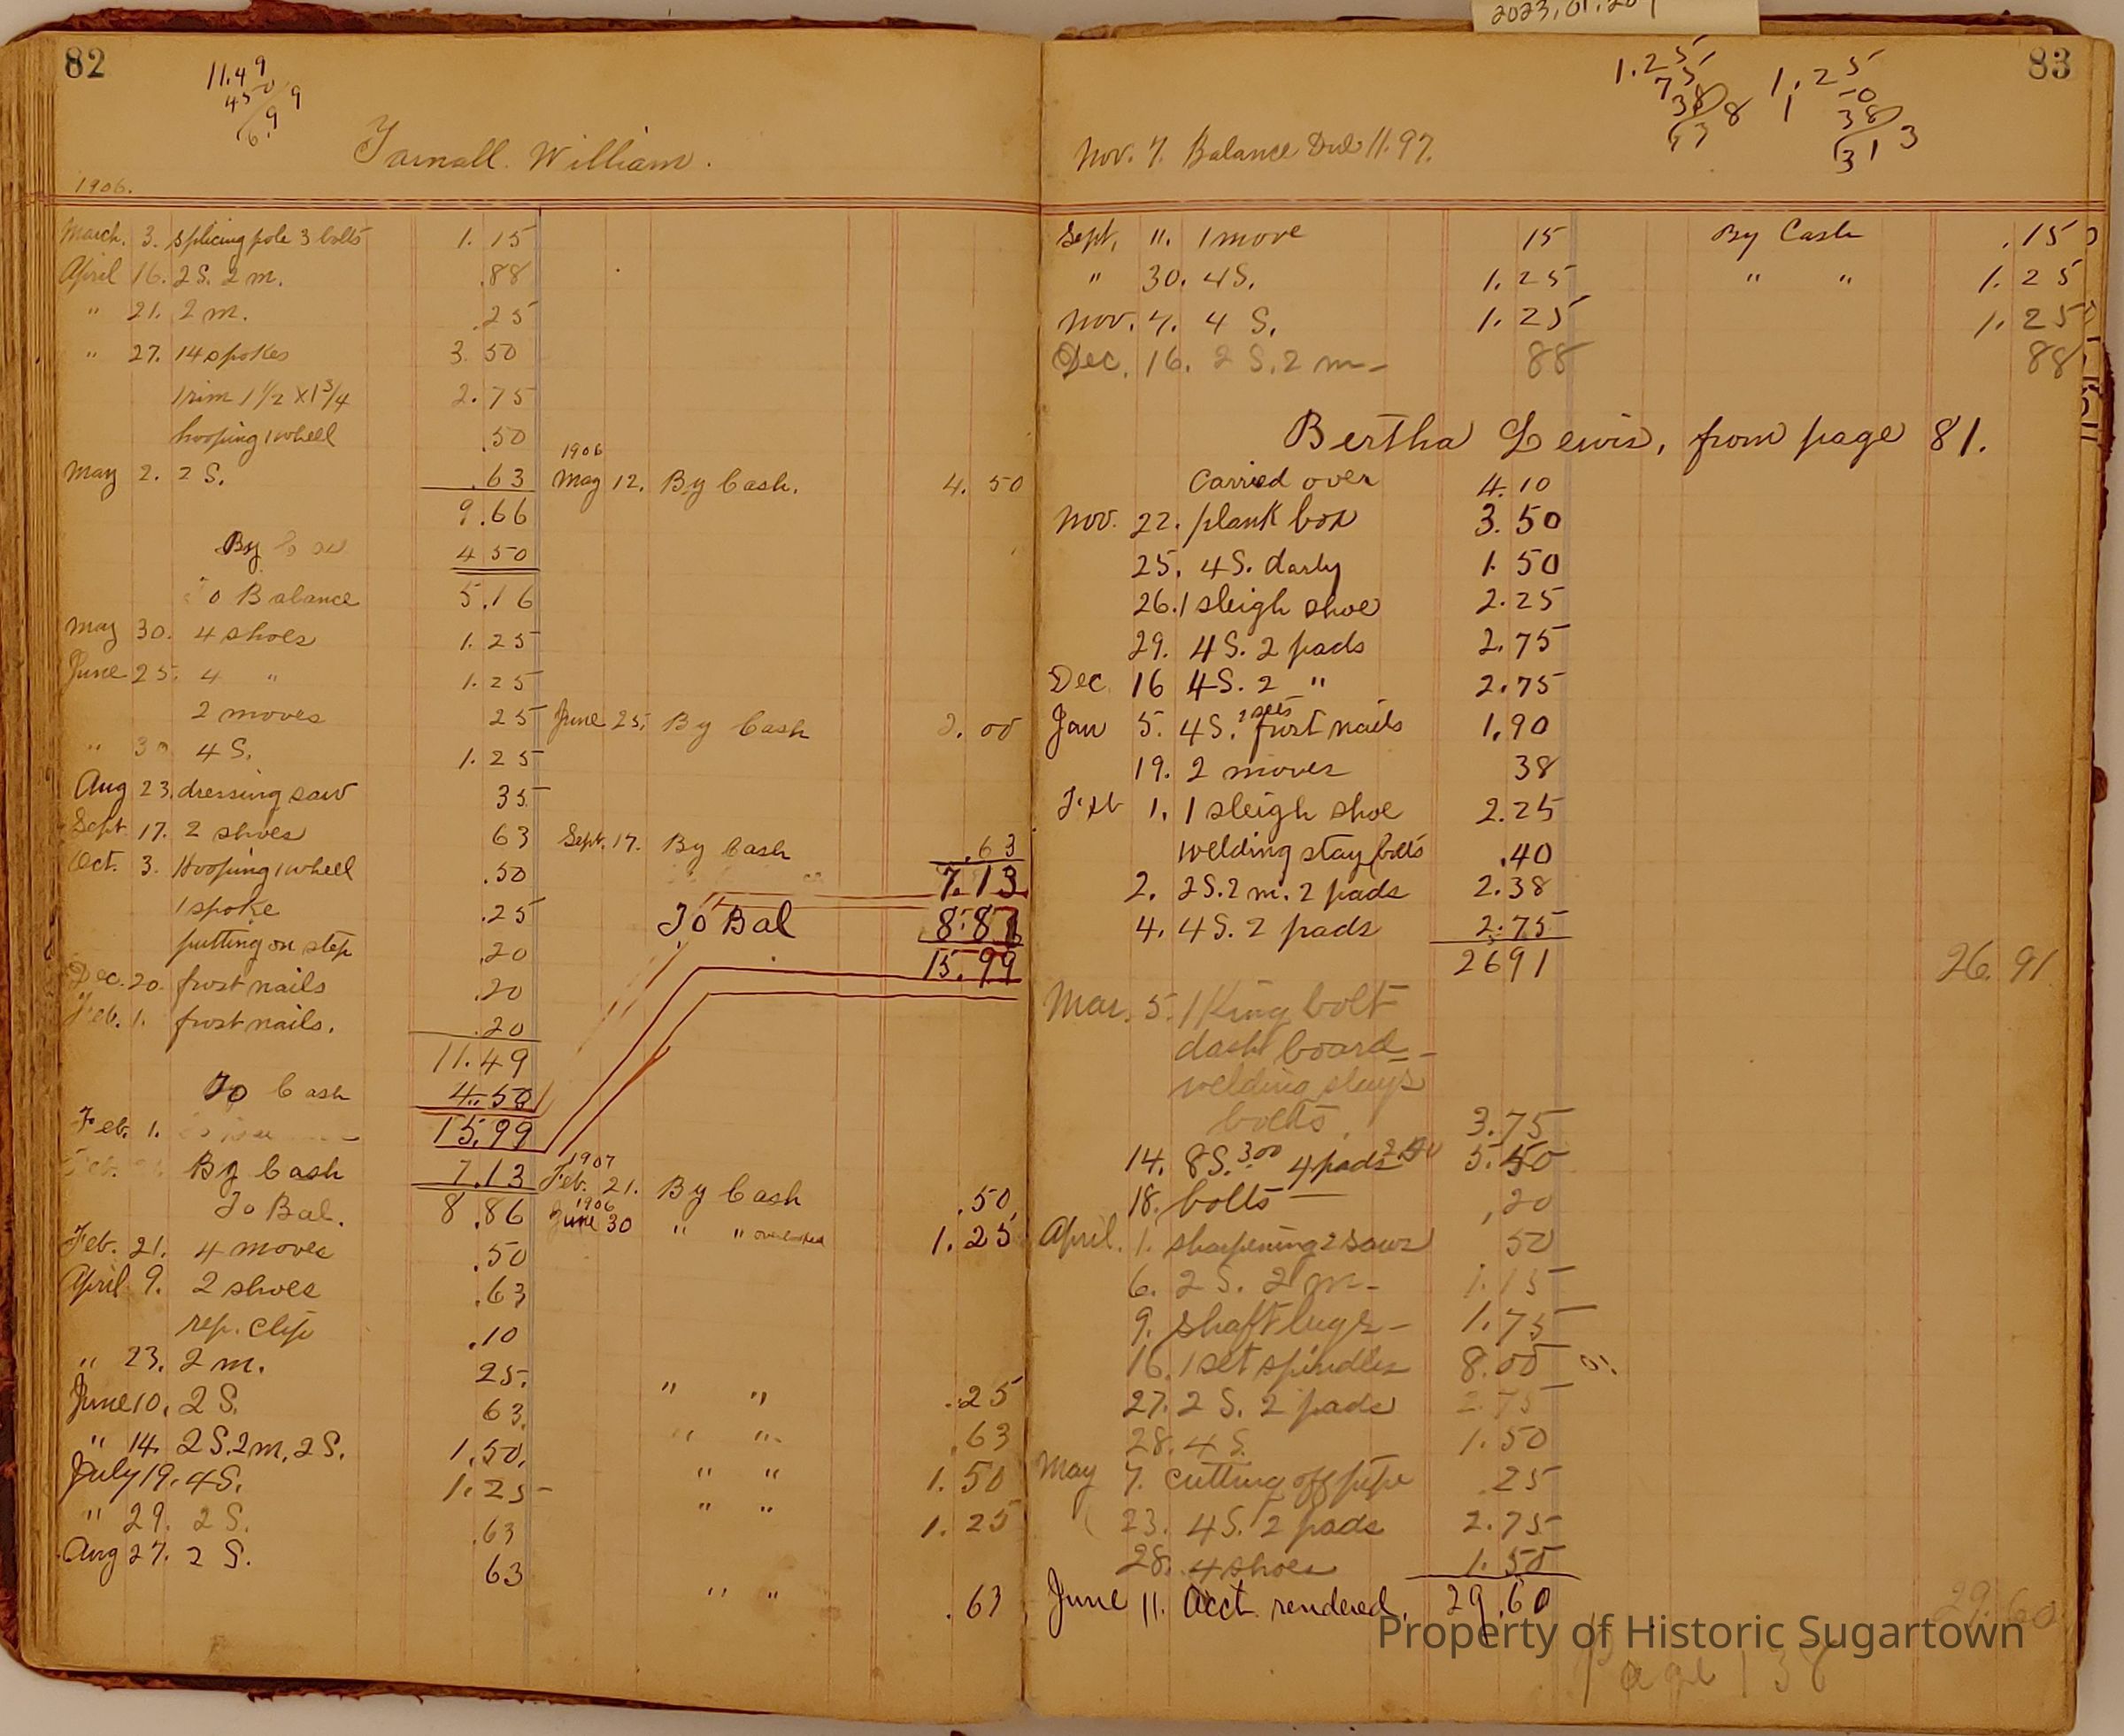 2023.01.20
82
11.49
450
6.99
Yarnall. William.
1906.
March. 3. splicing pole 3 bolts 1.15
April 16. 2 S. 2 m. .88
" 21. 2 m. .25
" 27. 14 spokes 3.50
1 rim 1 1/2 x 1 3/4 2.75
hooping 1 wheel .50
1906
May 2. 2 S. .63 May 12. By Cash. 4.50
9.66
By 4 50
To Balance 5.16
May 30. 4 shoes 1.25
June 25. 4 " 1.25
2 moves 25 June 25. By Cash 2.00
" 30 4 S. 1.25
Aug 23. dressing saw 35
Sept. 17. 2 shoes 63 Sept. 17. By Cash .63
Oct. 3. Hooping 1 wheel .50 7.13
1 spoke .25 To Bal 8.86
putting on step .20 15.99
Dec. 20. frost nails .20
Feb. 1. frost nails. .20
11.49
To Cash 4.50
Feb. 1. 15.99
By Cash 7.13 1907 Feb. 21. By Cash .50
To Bal. 8.86 1906 June 30 " " overlooked 1.25
Feb. 21. 4 moves .50
April 9. 2 shoes .63
rep. clip .10
" 23. 2 m. 25. " " .25
June 10. 2 S. 63. " " .63
" 14. 2 S. 2 m, 2 S. 1.50. " " 1.50
July 19. 4 S. 1.25 " " 1.25
" 29. 2 S. .63
Aug 27. 2 S. 63 " " .63
83
1.25
75
38
1.25
38
Nov. 7. Balance Due 11.97.
Sept. 11. 1 move 15 By Cash .15
" 30. 4 S. 1.25 " " 1.25
Nov. 7. 4 S. 1.25 1.25
Dec. 16. 2 S. 2 m 88 88
Bertha Lewis, from page 81.
Carried over 4.10
Nov. 22. plank box 3.50
25. 4 S. darly 1.50
26. 1 sleigh shoe 2.25
29. 4 S. 2 pads 2.75
Dec 16 4 S. 2 " 2.75
Jan 5. 4 S. 2 sets frost nails 1.90
19. 2 moves 38
Feb 1. 1 sleigh shoe 2.25
welding stay bolts .40
2. 2 S. 2 m. 2 pads 2.38
4. 4 S. 2 pads 2.75
2691 26.91
Mar. 5. 1 King bolt
dash board
welding stays
bolts. 3.75
14. 8 S. 3.00 4 pads 2.50 5.50
18. bolts .20
April. 1. sharpening 2 saws 50
6. 2 S. 2 m 1.15
9. shaft lugs 1.75
16. 1 set spindles 8.00
27. 2 S. 2 pads 2.75
28. 4 S. 1.50
May 7. cutting off pipe .25
23. 4 S. 2 pads 2.75
28. 4 shoes 1.50
June 11. Acct. rendered. 29.60 29.60
Property of Historic Sugartown
Page 138